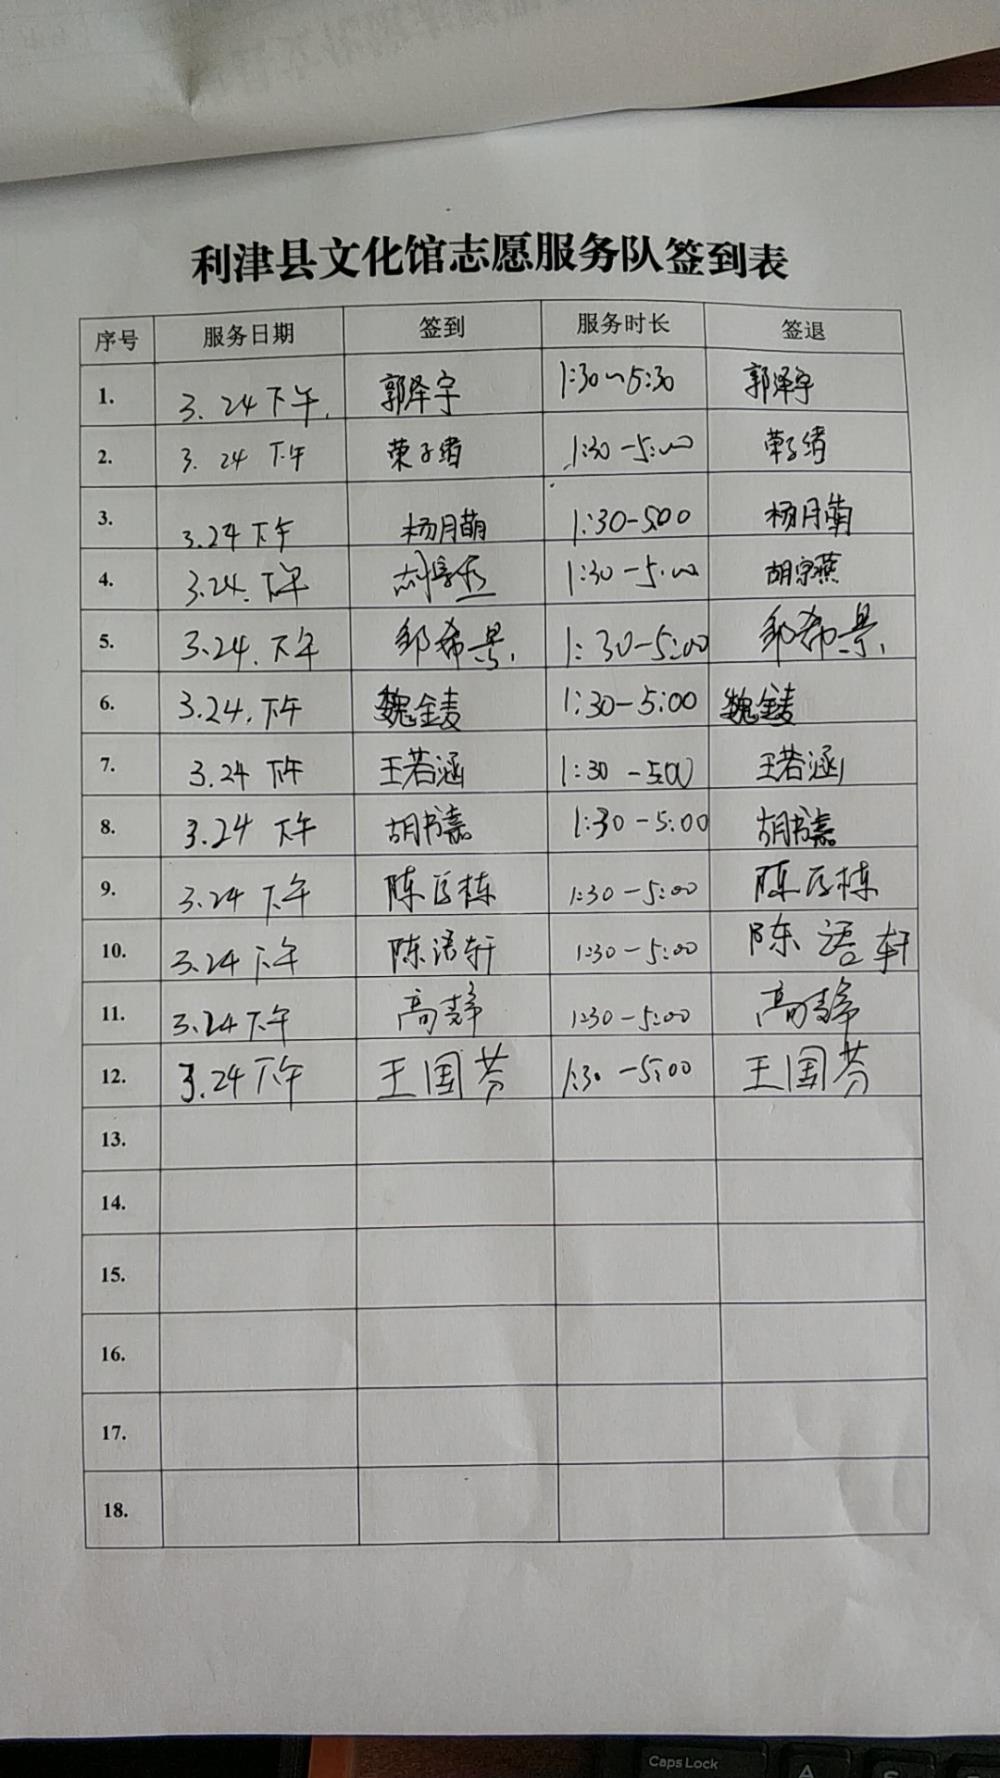 利津县文化馆志愿服务队签到表
序号 服务日期 签到 服务时长 签退
1. 3.24下午. 郭泽宇 1:30~5:30 郭泽宇
2. 3.24下午 荣子绪 1:30-5:00 荣子绪
3. 3.24下午 杨月萌 1:30-5:00 杨月萌
4. 3.24.下午 1:30-5:00 胡宗燕
5. 3.24.下午 邹希景. 1:30-5:00 邹希景.
6. 3.24.下午 魏金麦 1:30-5:00 魏金麦
7. 3.24下午 王若涵 1:30-5:00 王若涵
8. 3.24下午 胡书嘉 1:30-5:00 胡书嘉
9. 3.24下午 陈匠栋 1:30-5:00 陈匠栋
10. 3.24下午 陈语轩 1:30-5:00 陈语轩
11. 3.24下午 高静 1:30-5:00 高静
12. 3.24下午 王国芬 1:30-5:00 王国芬
13.
14.
15.
16.
17.
18.
Caps Lock
A